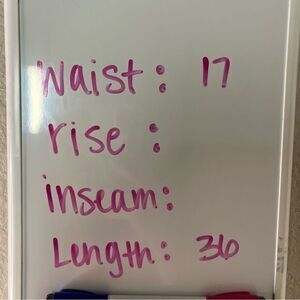 Waist: 17
rise:
inseam:
Length: 36